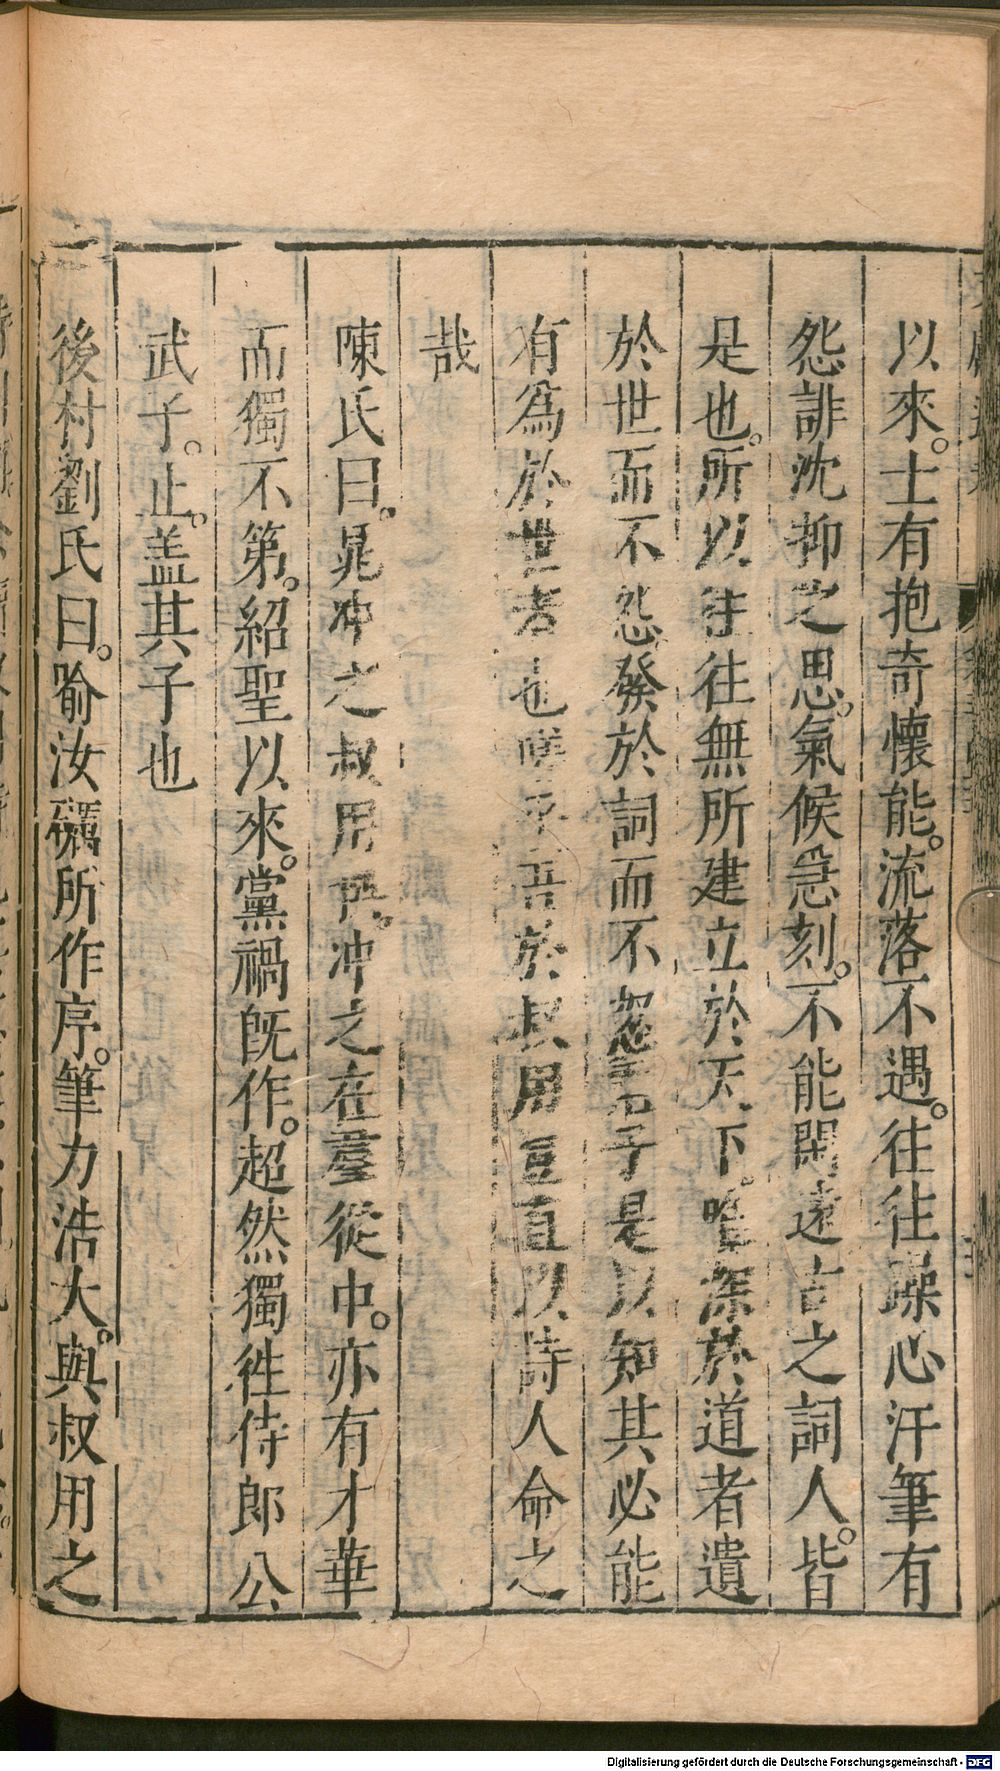 以來。士有抱奇懷能。流落不遇。往往躁心汗筆有
怨誹沈抑之思。氣候急刻。不能閑遠古之詞人。皆
是也。所以往往無所建立於天下。唯深於道者遺
於世而不怨發於詞而不怨君子是以知其必能
有爲於世者也嗟乎吾於叔用豈直以詩人命之
哉
陳氏曰。晁冲之叔用所。冲之在羣從中。亦有才華
而獨不第。紹聖以來。黨禍旣作。超然獨徃侍郎公
武子。止。盖其子也
後村劉氏曰。喻汝礪所作序。筆力浩大。與叔用之
Digitalisierung gefördert durch die Deutsche Forschungsgemeinschaft - DFG